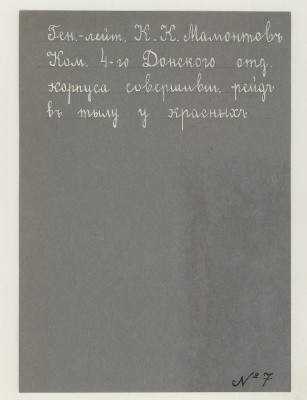 Ген.-лейт. К. К. Мамонтовъ
Ком. 4-го Донского отд.
корпуса совершивш. рейдъ
въ тылу у красныхъ
№ 7